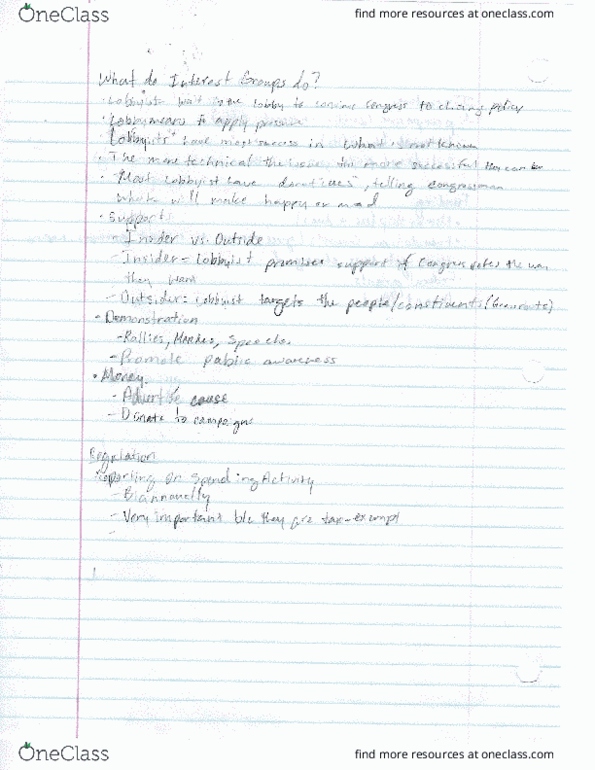 OneClass
find more resources at oneclass.com
What do Interest Groups do?
· Lobbyist wait in the lobby to congress to policy
· Lobby means to apply
Lobbyists have most success in what is not known
· The more technical the issue, the more successful they can be
· Most lobbyist have , telling congressman
what will make happy or mad
· Support
- Insider vs. Outside
- Insider = Lobbyist promises support if Congress votes the way
they want
- Outsider: Lobbyist targets the people/constituents (Grassroots)
- Demonstration
- Rallies, Marches, Speechs.
- Promote public awareness
· Money.
- Advertise cause
- Donate to campaigns
Regulation
Reporting on Spending Activity
- Biannually
- Very important b/c they are tax-exempt
-
OneClass
find more resources at oneclass.com